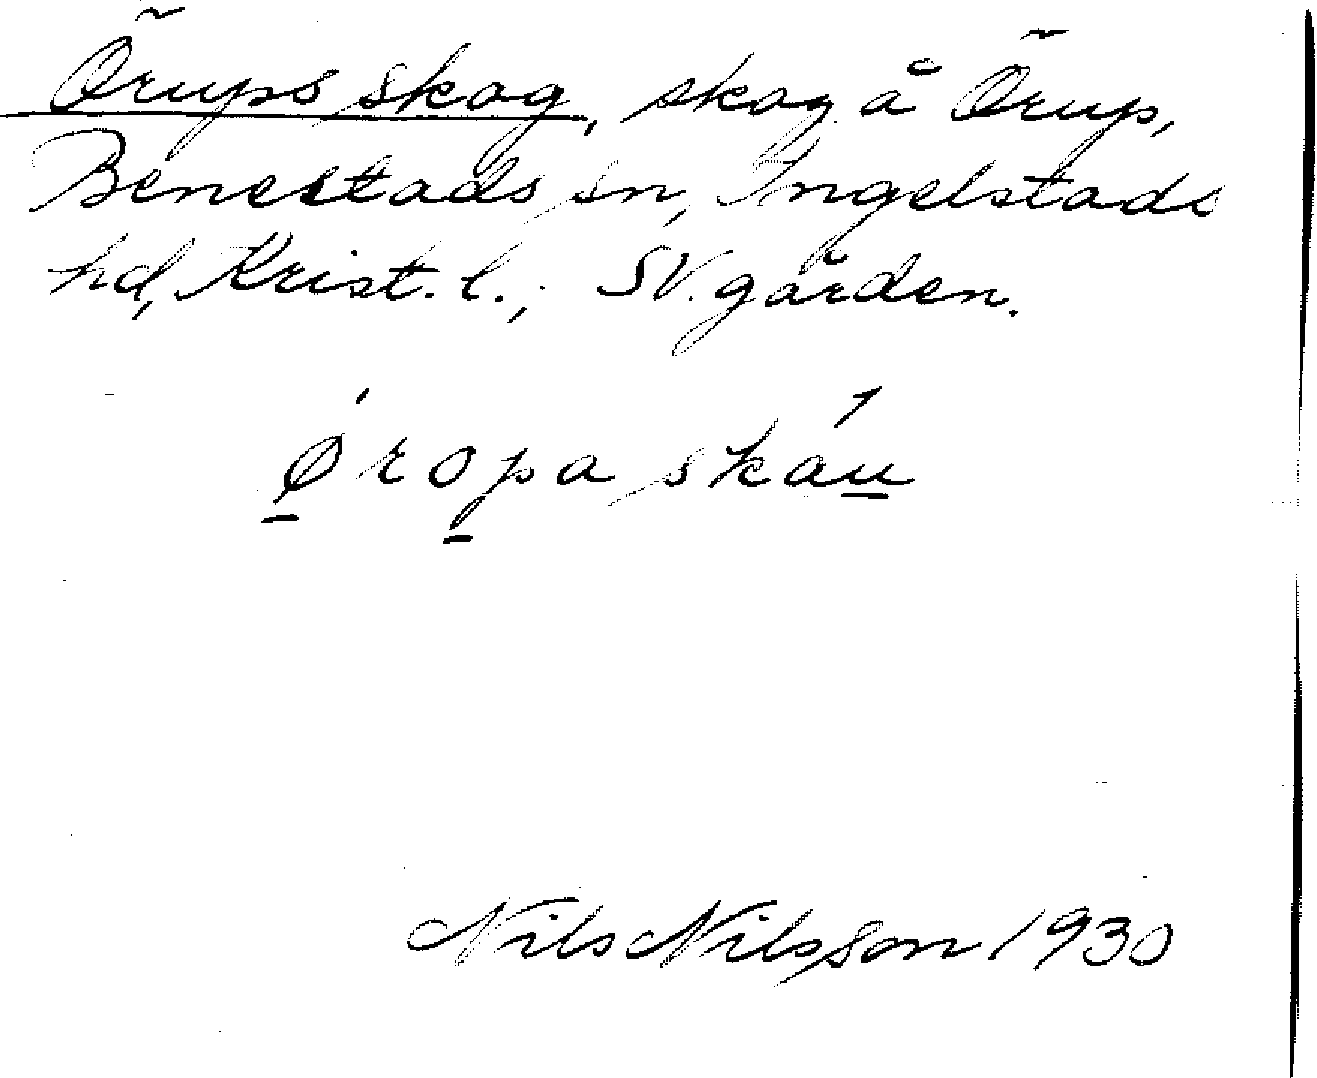 Örups skog, skog å Örup,
Benestads sn, Ingelstads
hd, Krist. l.; SV. gården.
Øropa skáu
Nils Nilsson 1930